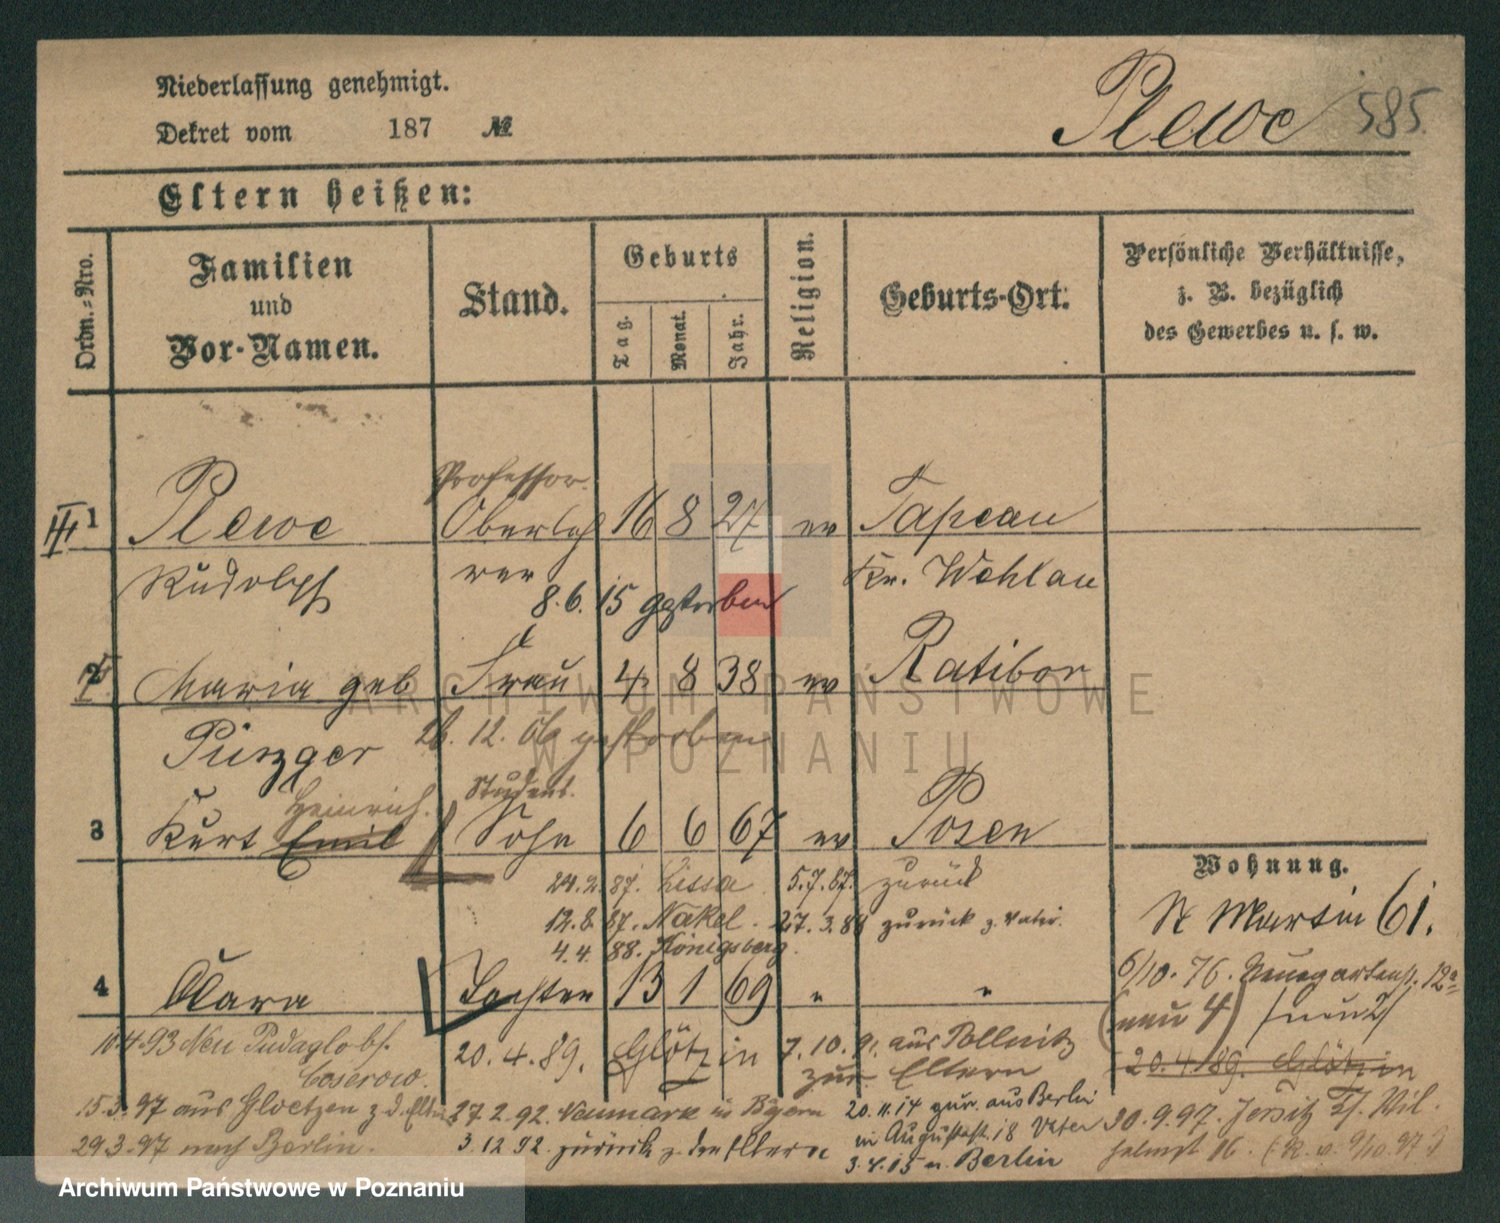 Niederlassung genehmigt.
Dekret vom 187 №
Plewe 585.
Eltern heißen:
Ordn.-Nro.
Familien und Vor-Namen.
Stand.
Geburts
Tag. Monat. Jahr.
Religion.
Geburts-Ort.
Persönliche Verhältnisse, z. B. bezüglich des Gewerbes u. s. w.
Professor.
III 1 Plewe Oberleh 16 8 27 ev Tapeau
Rudolph rer Kr. Wehlau
8.6.15 gestorben
2 Maria geb Frau 4 8 38 ev Ratibor
Pinzger 12. 06 gestorben
Heinrich. Student.
3 Kurt Emil Sohn 6 6 67 ev Posen
Wohnung.
24.2.87. Lissa 5.7.87. zurück
St Martin 61.
12.8.87. Nakel. 27.3.88 zurück z. Vater.
4.4.88. Königsberg.
6/10.76. Neuegartenstr. 12a
4 Clara Tochter 13 1 69 " "
(neu 4) /neu 2/
10.4.93 Neu Pudagla bf. Coserow.
20.4.89. Glötzin
7.10.91. aus Pollnitz zur. Eltern
20.4.89. Glötzin
15.3.97 aus Gloetzen z. d. Eltern
27.2.92. Neumark in Bayern
20.11.14 zur. aus Berlin
30.9.97. Jersitz
29.3.97 nach Berlin.
3.12.92. zurück z. den Eltern
in Augustastr. 18 Vater
helmst 16.
3.4.15 n. Berlin
ARCHIWUM PAŃSTWOWE
W POZNANIU
Archiwum Państwowe w Poznaniu